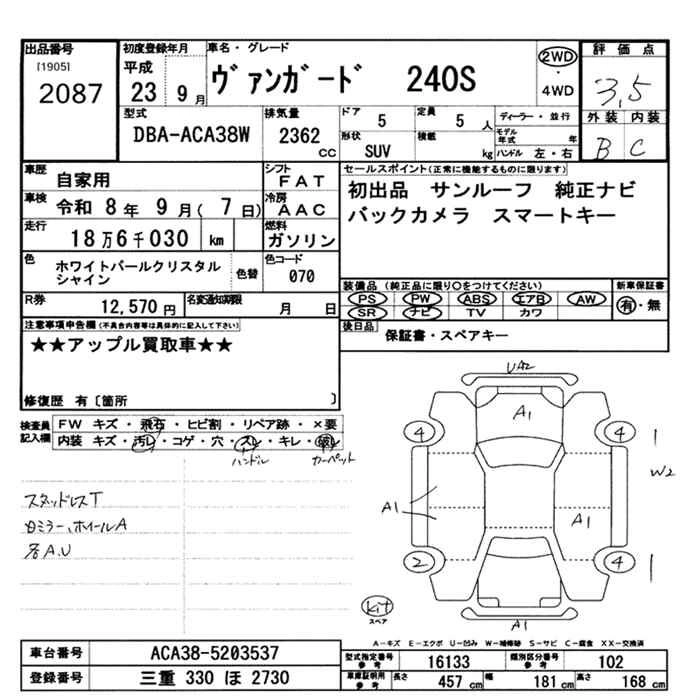 出品番号 初度登録年月 車名・グレード 評価点
[1905] 平成 ヴァンガード 240S 2WD ・ 4WD 3,5
2087 23 9月 外装 内装
型式 排気量 ドア 5 定員 5人 ディーラー・並行 B C
DBA-ACA38W 2362cc 形状 SUV 積載 kg モデル年式 年 ハンドル 左・右
車歴 自家用 シフト FAT セールスポイント(正常に機能するものに限ります)
車検 令和 8年 9月( 7日) 冷房 AAC 初出品 サンルーフ 純正ナビ
走行 18万6千030 km 燃料 ガソリン バックカメラ スマートキー
色 ホワイトパールクリスタルシャイン 色替 色コード 070
装備品(純正品に限り○をつけてください) 新車保証書
R券 12,570円 名変通知期限 月 日 PS PW ABS エアB AW 有・無
SR ナビ TV カワ
注意事項申告欄(不具合内容等は具体的に記入して下さい) 後日品 保証書・スペアキー
★★アップル買取車★★
修復歴 有〔箇所 〕
検査員記入欄 FW キズ・飛石・ヒビ割・リペア跡・×要
内装 キズ・汚レ・コゲ・穴・スレ・キレ・破レ
ハンドル カーペット
スタッドレスT
ミラー、ホイールA
各A.U
UA2
A1
4 4 1
W2
A1 A1
2 4 1
Kit
スペア
A1
A-キズ E-エクボ U-凹み W-補修跡 S-サビ C-腐食 XX-交換済
車台番号 ACA38-5203537 型式指定番号 参考 16133 類別区分番号 参考 102
登録番号 三重 330 ほ 2730 車庫証明用 参考 長さ 457cm 幅 181cm 高さ 168cm